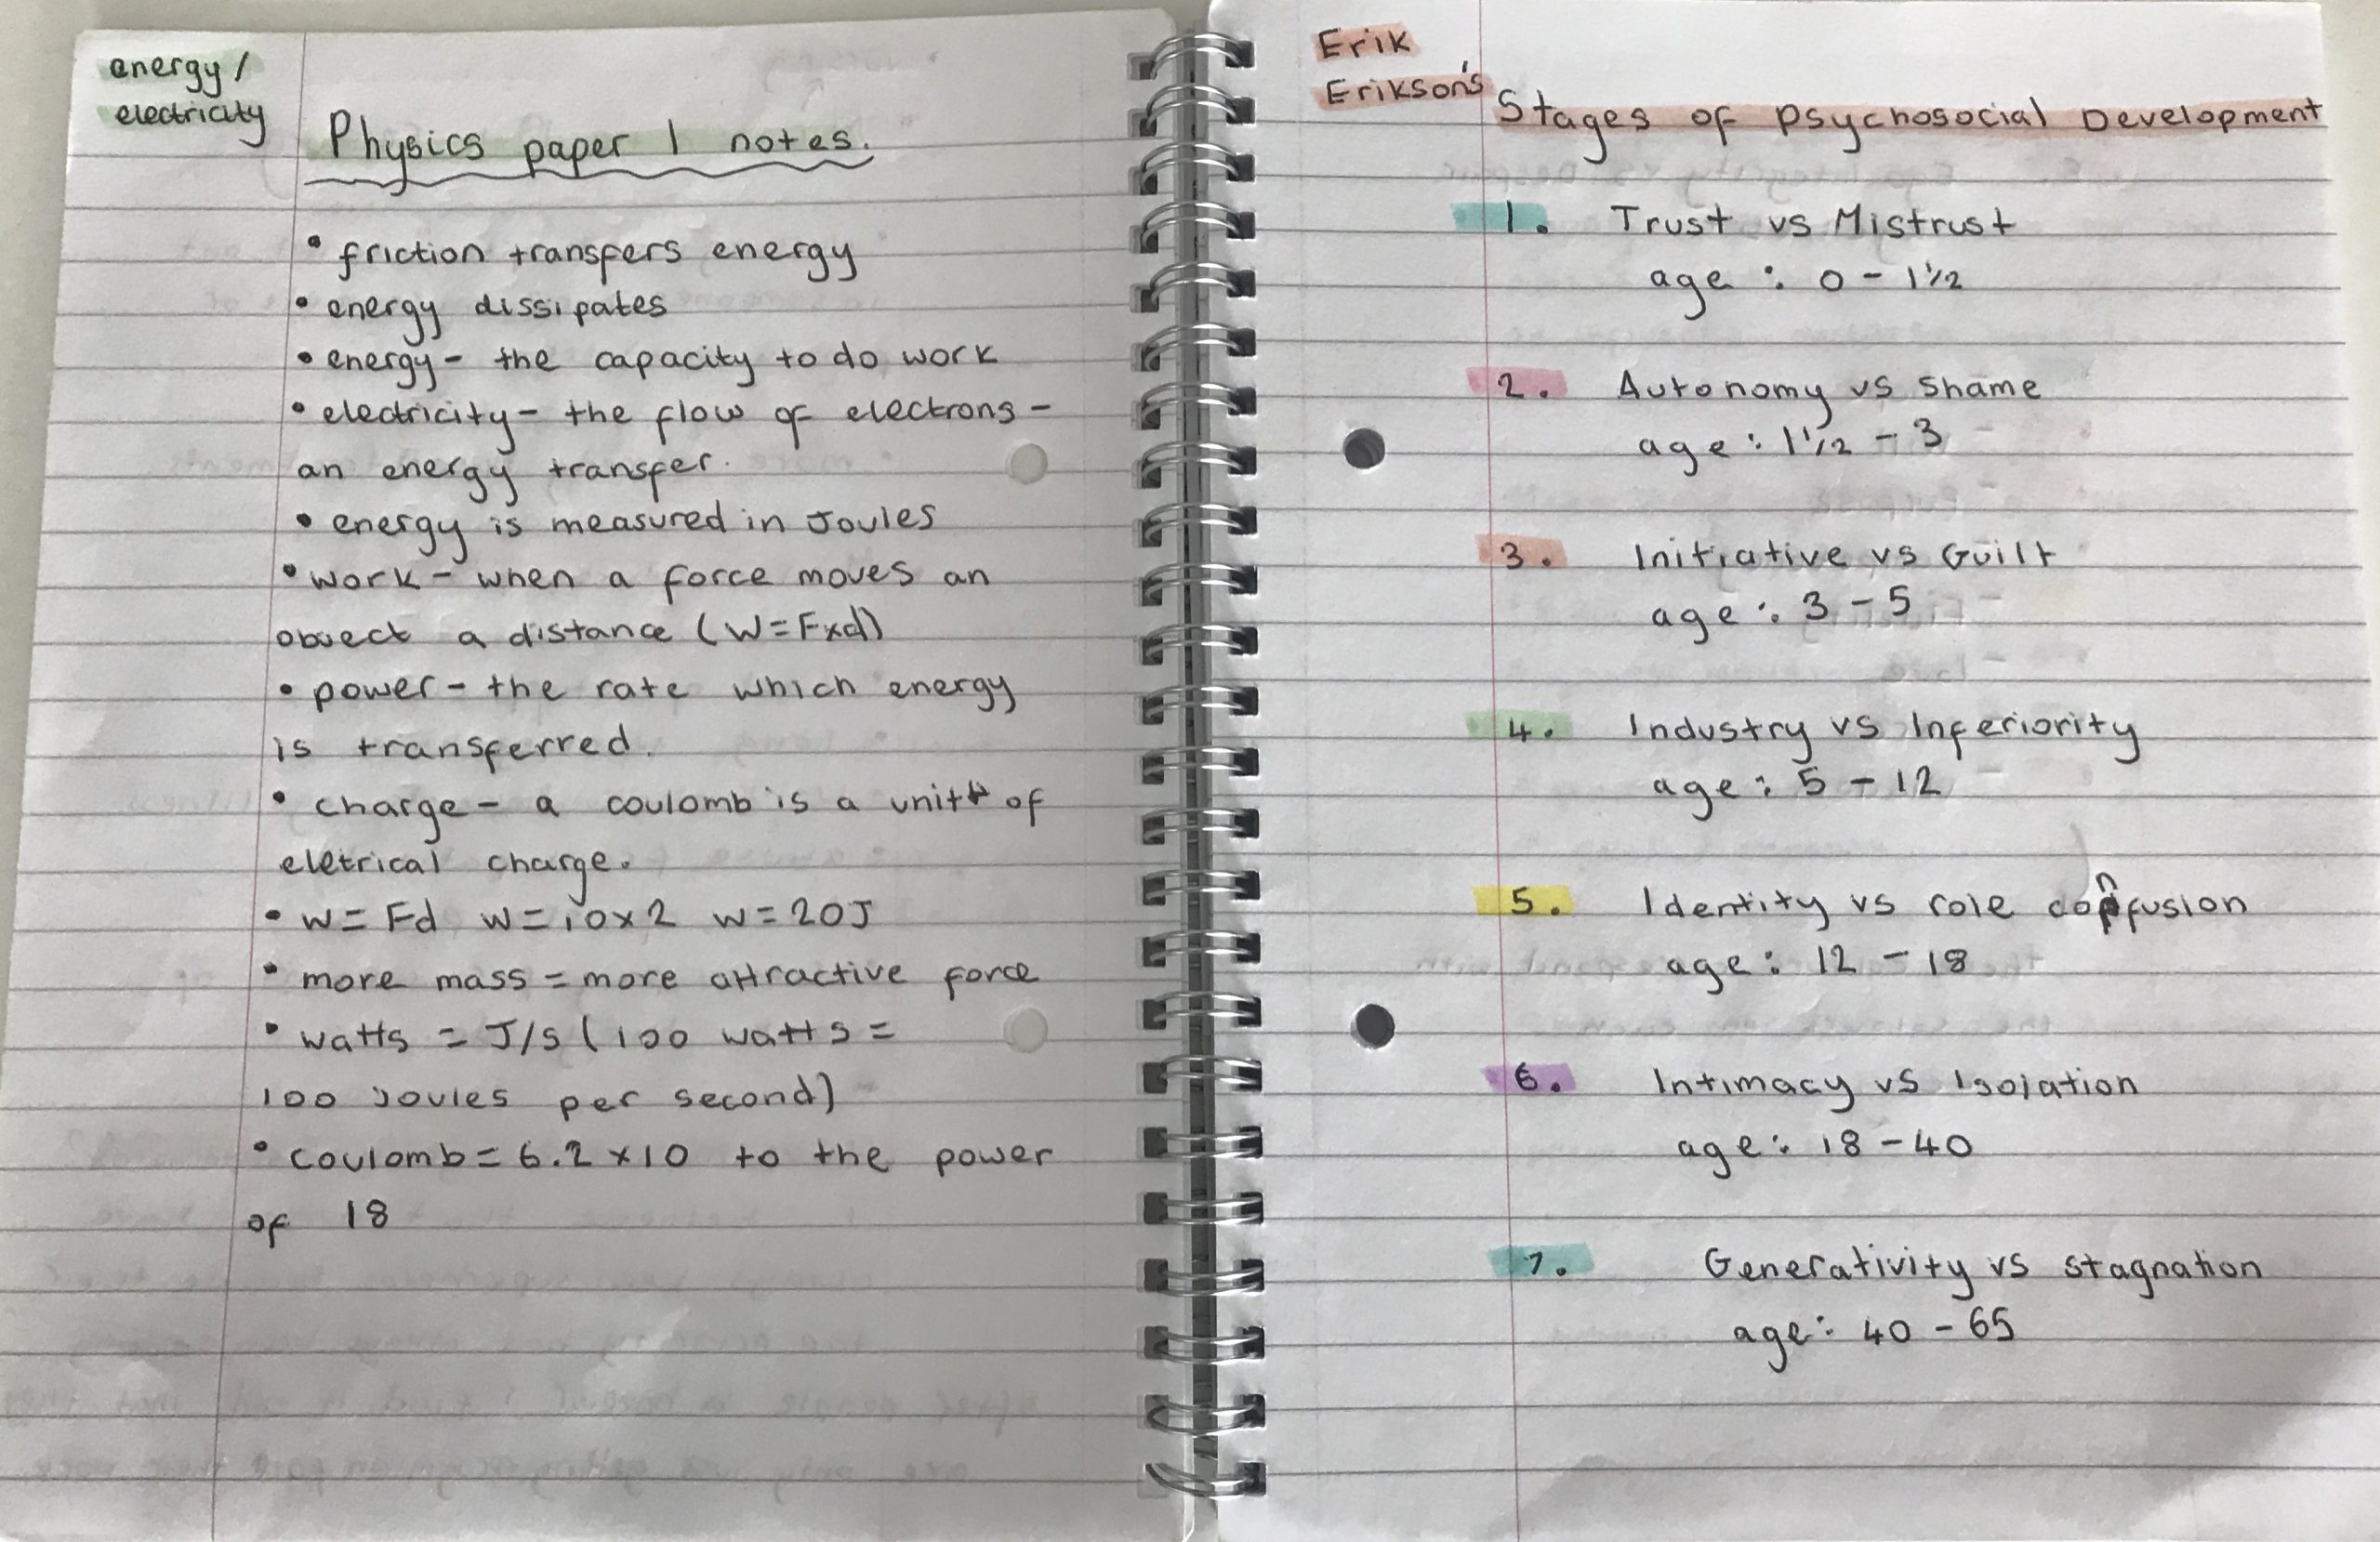 energy/
electricity
Physics paper 1 notes.
• friction transfers energy
• energy dissipates
• energy - the capacity to do work
• electricity - the flow of electrons -
an energy transfer.
• energy is measured in Joules
• work - when a force moves an
object a distance (W=Fxd)
• power - the rate which energy
is transferred.
• charge - a coulomb is a unit of
eletrical charge.
• W=Fd W=10x2 W=20J
• more mass = more attractive force
• watts = J/s (100 watts =
100 Joules per second)
• coulomb = 6.2 x10 to the power
of 18
Erik
Erikson's
Stages of Psychosocial Development
1. Trust vs Mistrust
age: 0 - 1½
2. Autonomy vs Shame
age: 1½ - 3
3. Initiative vs Guilt
age: 3 - 5
4. Industry vs Inferiority
age: 5 - 12
5. Identity vs role confusion
age: 12 - 18
6. Intimacy vs Isolation
age: 18 - 40
7. Generativity vs stagnation
age: 40 - 65